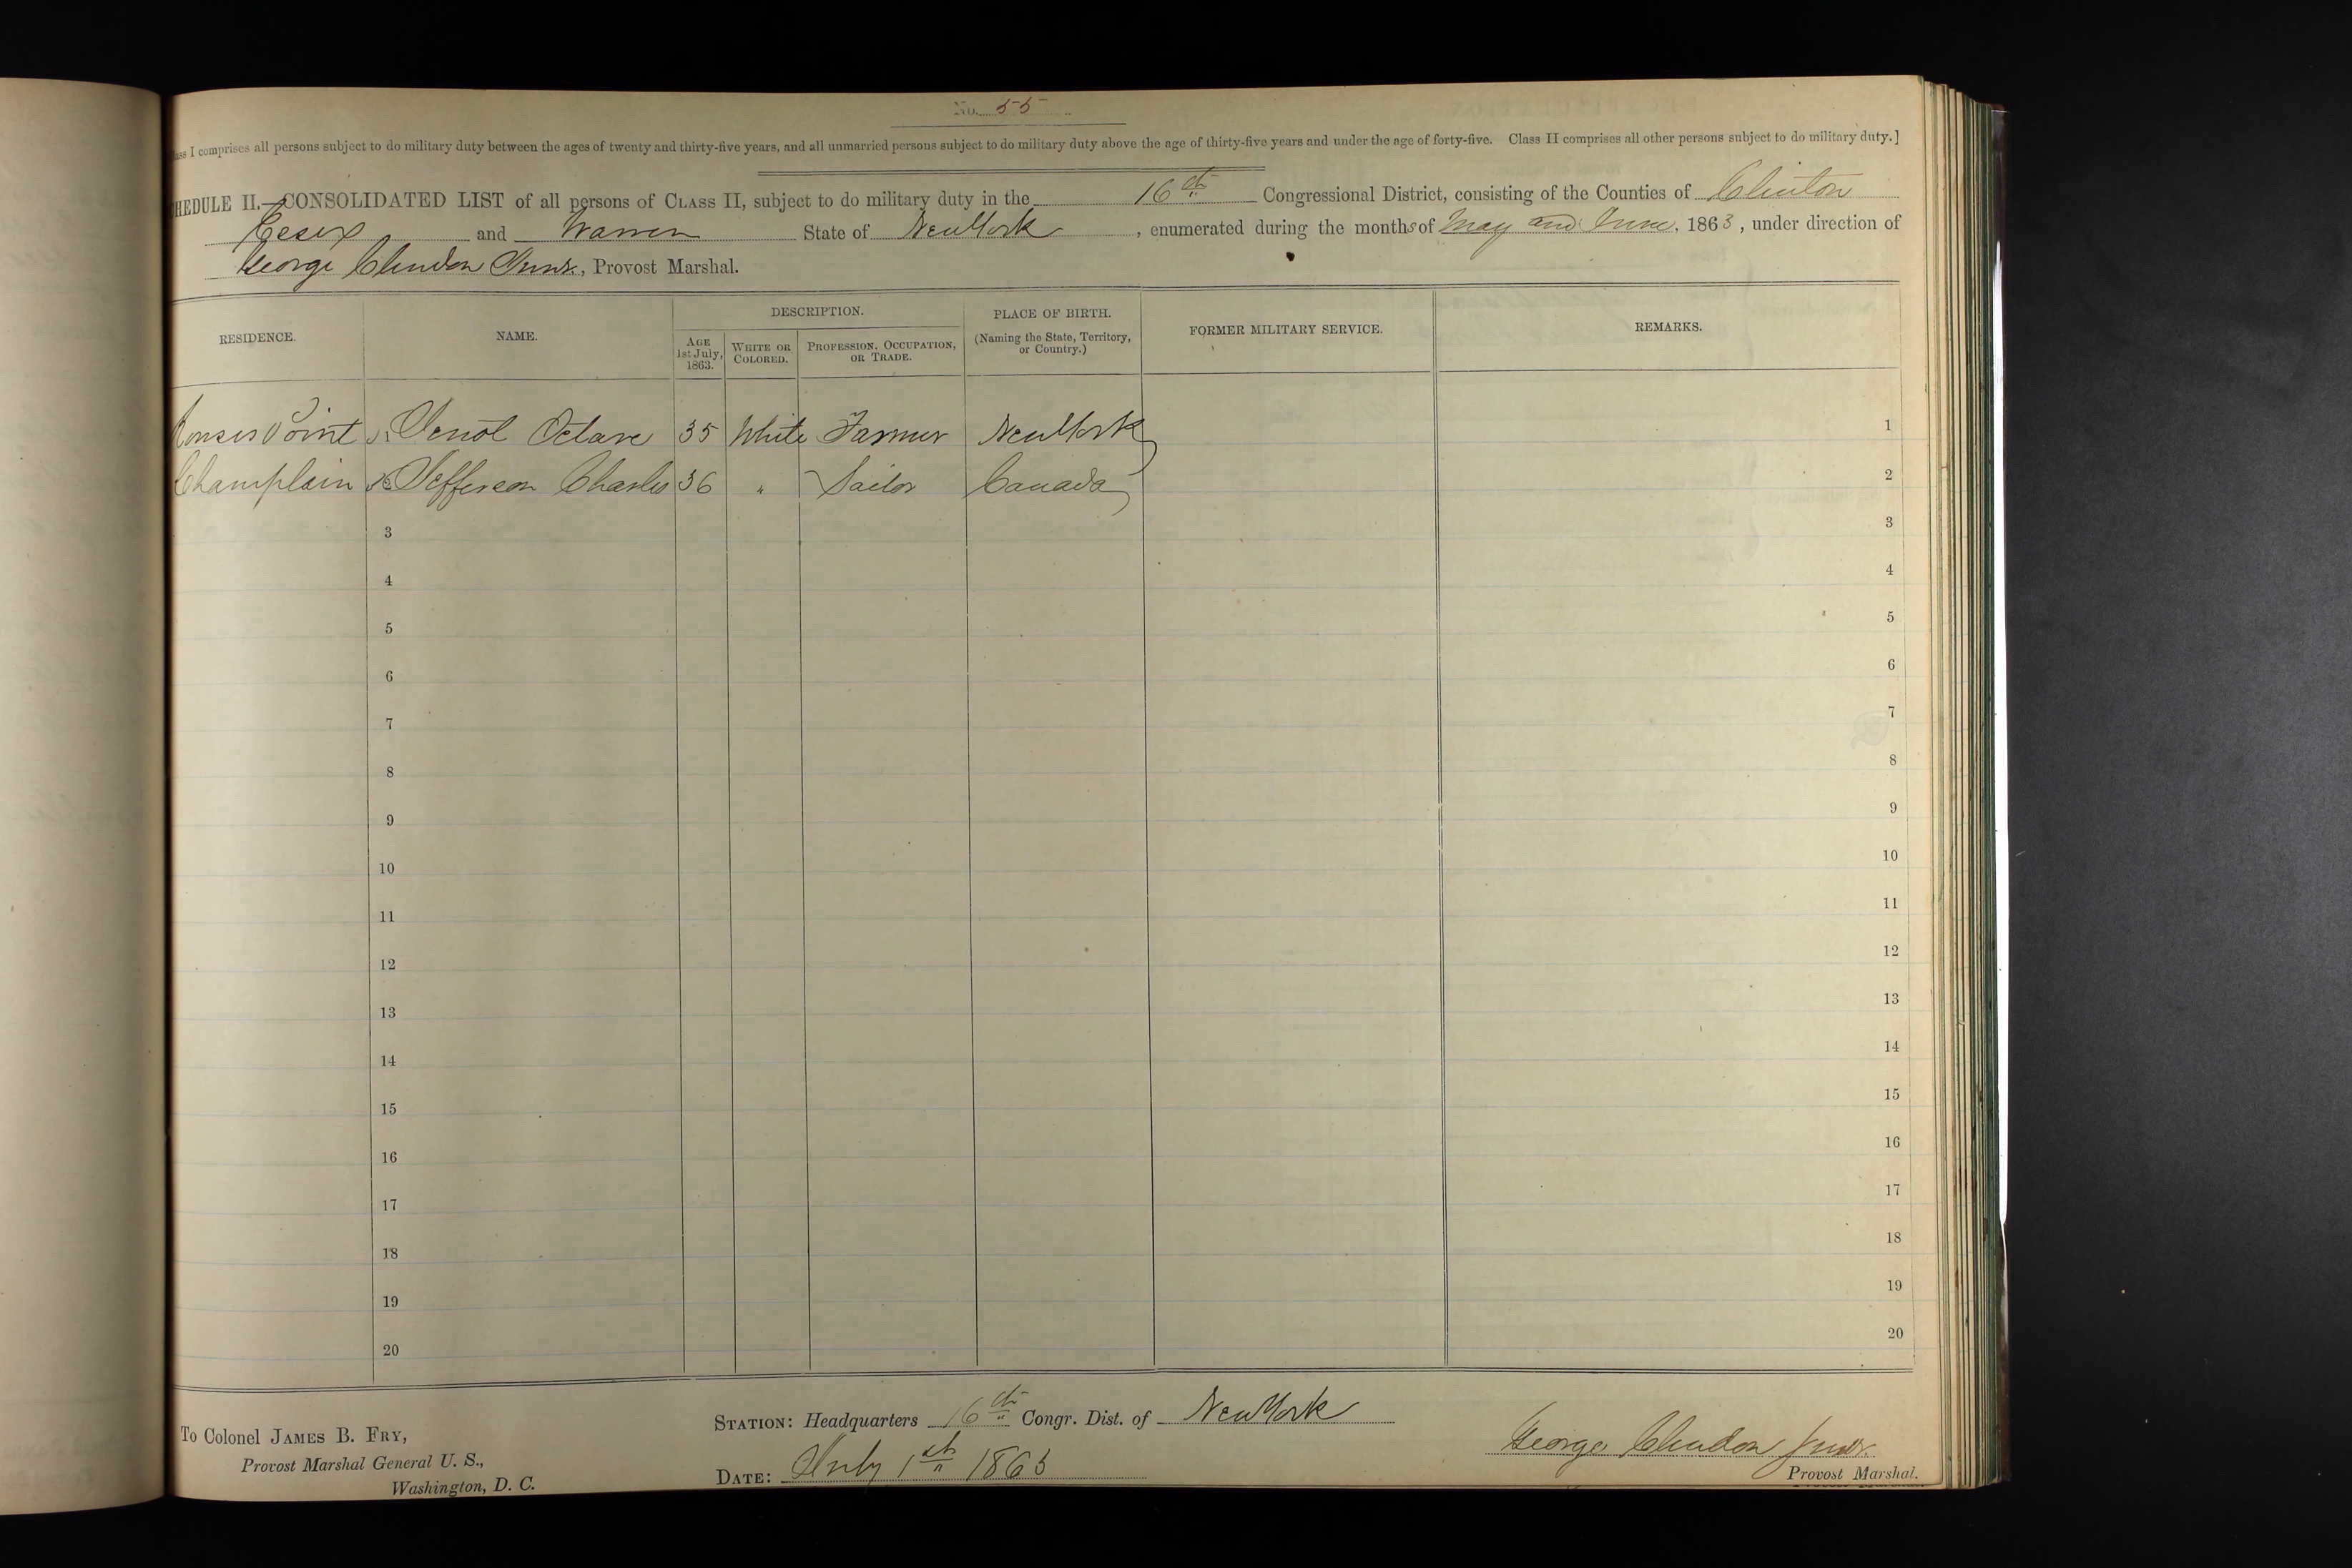 No. 55
ass I comprises all persons subject to do military duty between the ages of twenty and thirty-five years, and all unmarried persons subject to do military duty above the age of thirty-five years and under the age of forty-five. Class II comprises all other persons subject to do military duty.]
HEDULE II.—CONSOLIDATED LIST of all persons of CLASS II, subject to do military duty in the 16th Congressional District, consisting of the Counties of Clinton
Essex and Warren State of New York, enumerated during the months of May and June, 1863, under direction of
George Clendon Junr., Provost Marshal.
RESIDENCE. NAME. DESCRIPTION. PLACE OF BIRTH. (Naming the State, Territory, or Country.) FORMER MILITARY SERVICE. REMARKS.
AGE 1st July, 1863. WHITE OR COLORED. PROFESSION, OCCUPATION, OR TRADE.
Rouses Point Octave 35 White Farmer New York 1
Champlain Jefferson Charles 36 " Sailor Canada 2
3 3
4 4
5 5
6 6
7 7
8 8
9 9
10 10
11 11
12 12
13 13
14 14
15 15
16 16
17 17
18 18
19 19
20 20
To Colonel JAMES B. FRY,
Provost Marshal General U. S.,
Washington, D. C.
STATION: Headquarters 16th Congr. Dist. of New York
DATE: July 1st 1863
George Clendon Junr.
Provost Marshal.